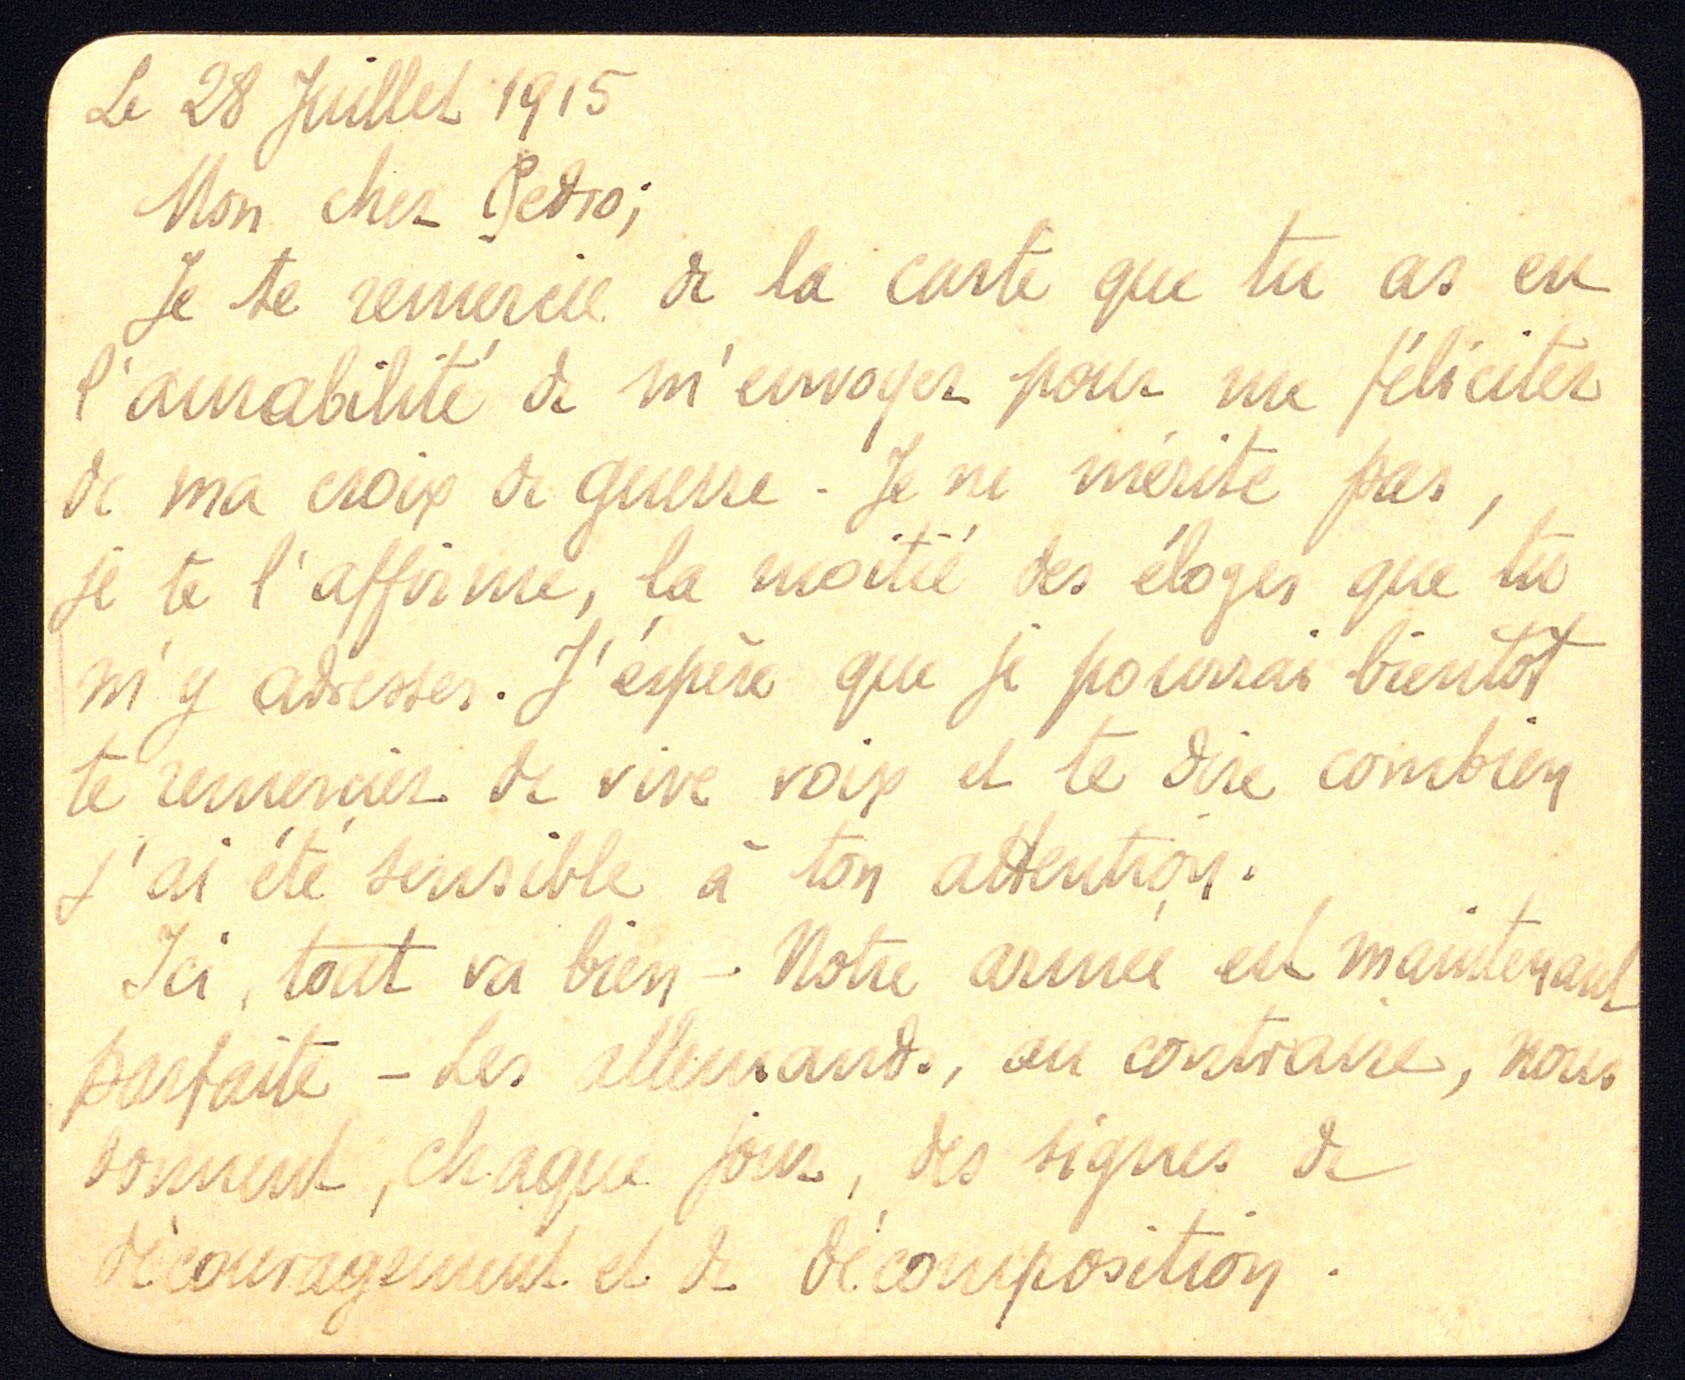 Le 28 Juillet 1915
Mon cher Pedro;
Je te remercie de la carte que tu as eu
l'amabilité de m'envoyer pour me féliciter
de ma croix de guerre. Je ne mérite pas,
je te l'affirme, la moitié des éloges que tu
m'y adresses. J'éspère que je pourrai bientôt
te remercier de vive voix et te dire combien
j'ai été sensible à ton attention.
Ici, tout va bien - Notre armée est maintenant
parfaite - Les allemands, au contraire, nous
donnent, chaque jour, des signes de
découragement et de décomposition.